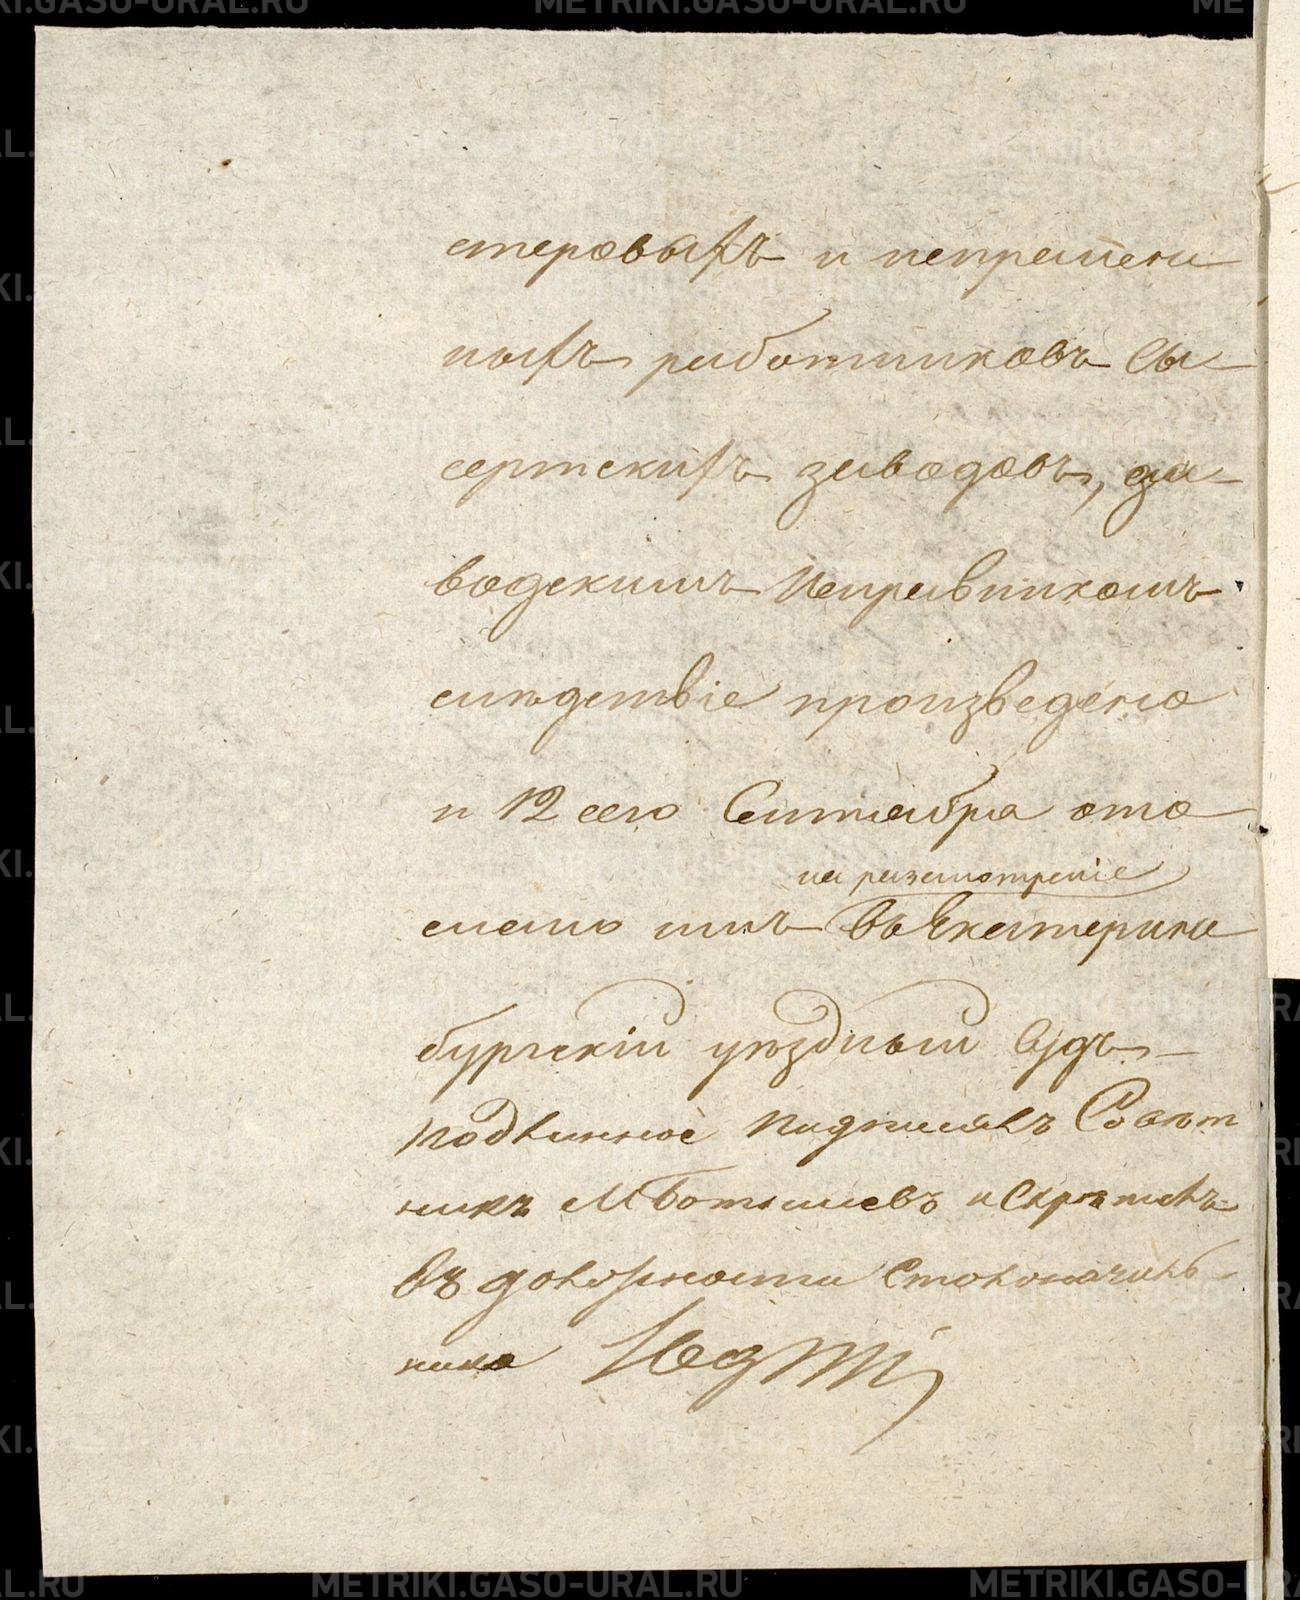 METRIKI.GASO-URAL.RU
стеровыхъ и непремен
ныхъ работниковъ Сы
сертскихъ заводовъ, за
водскимъ Исправникомъ
слѣдствіе произведено
и 12 сего Сентября ото
на разсмотреніе
слано имъ въ Екатерин
бургскій уѣздный Судъ
Подлинное подписалъ Совѣт
никъ М и Скрѣпилъ
въ должности Столоначаль
ника